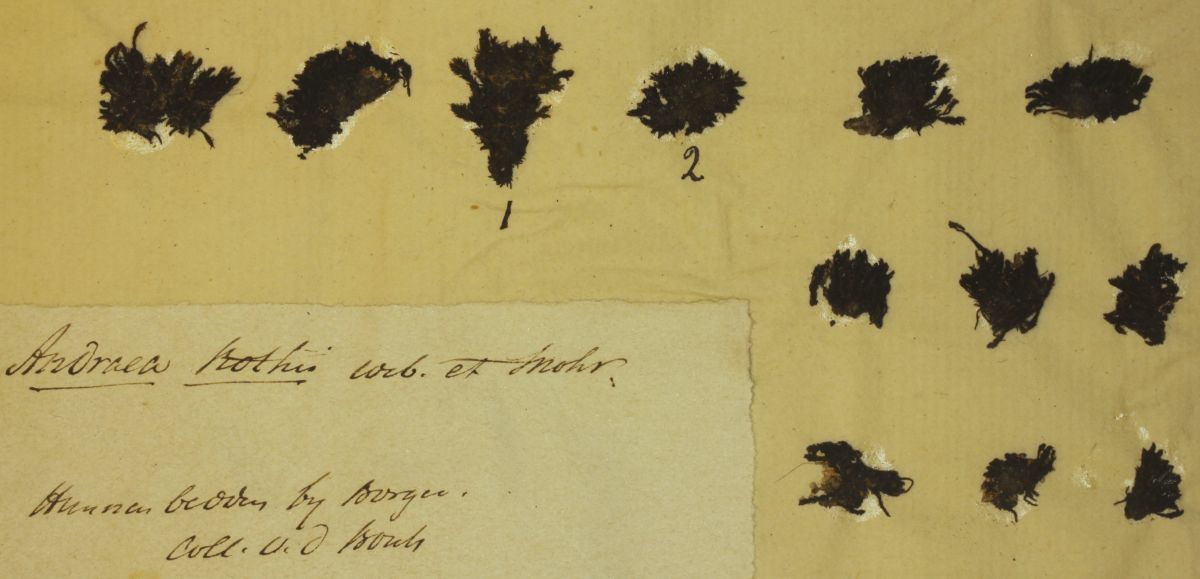 1
2
Andraea Rothii web. et Mohr.
Hunnen bedden by Borger.
Coll. v. d Bosch